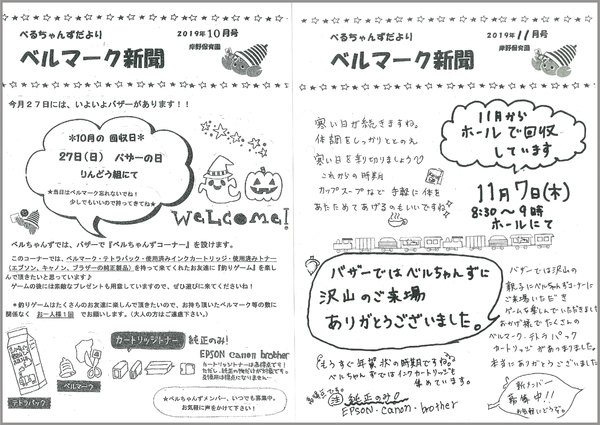 べるちゃんずだより
2019年10月号
ベルマーク新聞
岸野保育園
今月27日には、いよいよバザーがあります!!
*10月の 回収日*
27日(日) バザーの日
りんどう組にて
★当日はベルマーク忘れないでね!
少しでもいいので持ってきてね★
WeLCOMe!
ベルちゃんずでは、バザーで『ベルちゃんずコーナー』を設けます。
このコーナーでは、ベルマーク・テトラパック・使用済みインクカートリッジ・使用済みトナー
(エプソン、キャノン、ブラザーの純正製品)を持って来てくれたお友達に『釣りゲーム』を楽し
んで頂きたいと思っています♪
ゲームの後には素敵なプレゼントも用意していますので、ぜひ遊びに来てくださいね!
*釣りゲームはたくさんのお友達に楽しんで頂きたいので、お持ち頂いたベルマーク等の数に
関係なく お一人様1回 でお願いします。(大人の方はご遠慮下さい。)
カートリッジトナー 純正のみ!
EPSON canon brother
テトラパック
ベルマーク
★ベルちゃんずメンバー、いつでも募集中。
お気軽に声をかけて下さい!
べるちゃんずだより
2019年11月号
ベルマーク新聞
岸野保育園
寒い日が続きますね。
体調をしっかりととのえ
寒い日を乗り切りましょう♡
これからの時期
カップスープなど 手軽に体を
あたためてあげるのもいいですね
11月から
ホールで回収
しています
11月7日(木)
8:30～9時
ホールにて
バザーではベルちゃんずに
沢山のご来場
ありがとうございました。
バザーでは沢山の
親子にベルちゃんずコーナーに
ご来場いただき
ゲームを楽しんでいただきました
おかげ様でたくさんの
ベルマーク、テトラパック
カートリッジが あつまりました。
本当にありがとうございました
もうすぐ年賀状の時期ですね。
べるちゃんずではインクカートリッジも
集めています。
注 純正のみ!
EPSON・canon・brother
新メンバー
募集中!!